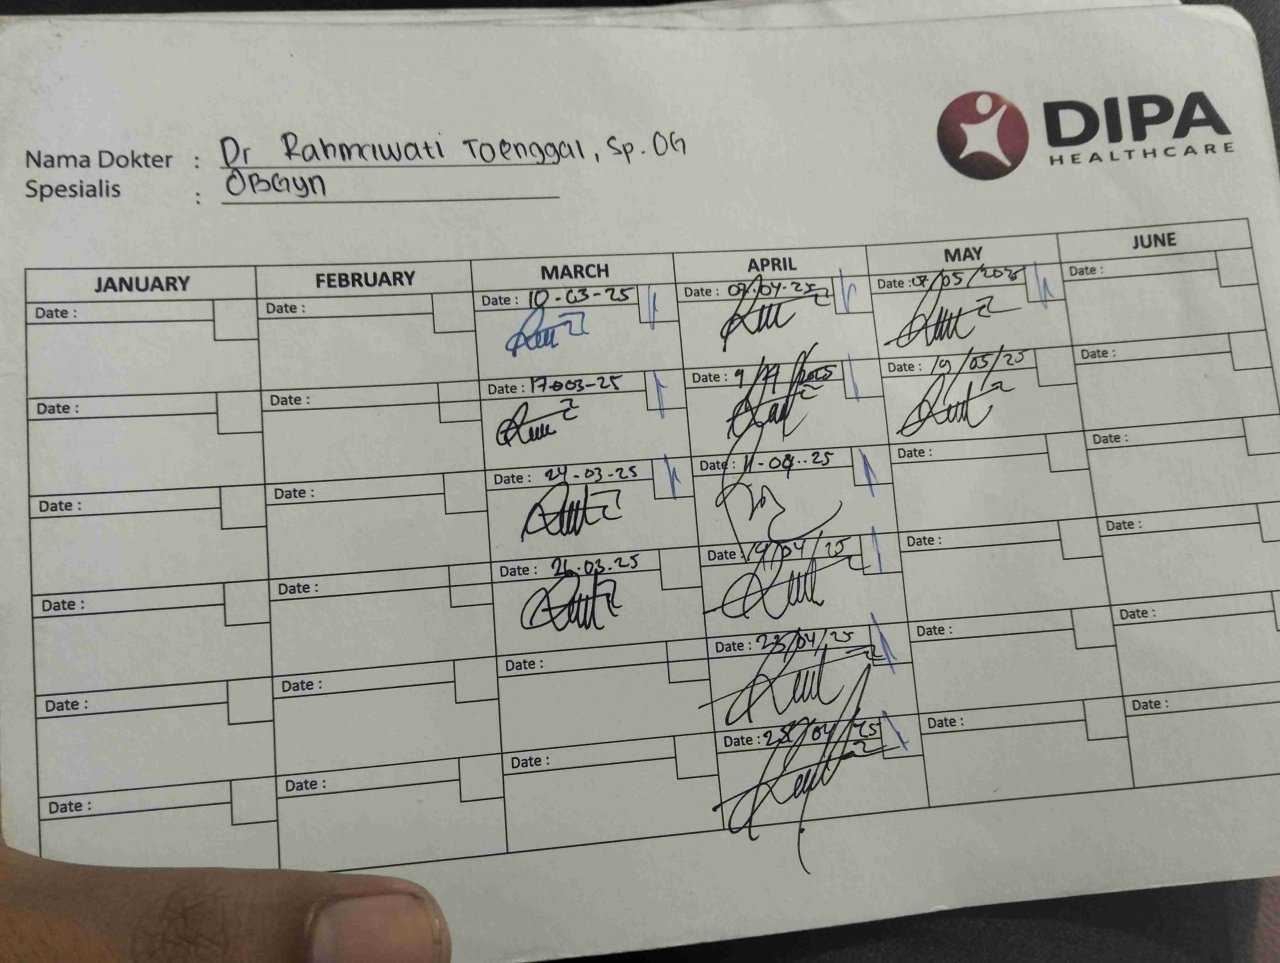 DIPA
HEALTHCARE
Nama Dokter : Dr Rahmawati Toenggal, Sp.OG
Spesialis : OBGyn
JANUARY FEBRUARY MARCH APRIL MAY JUNE
Date : Date : Date : 10-03-25 Date : 07.04.25 Date : 07/05/2025 Date :
Date : Date : Date : 17-03-25 Date : 9/ /2025 Date : 19/05/25 Date :
Date : Date : Date : 24-03-25 Date : 11-04-25 Date : Date :
Date : Date : Date : 26.03.25 Date : 19/04/25 Date : Date :
Date : Date : Date : Date : 23/04/25 Date : Date :
Date : Date : Date : Date : 28/04/25 Date : Date :